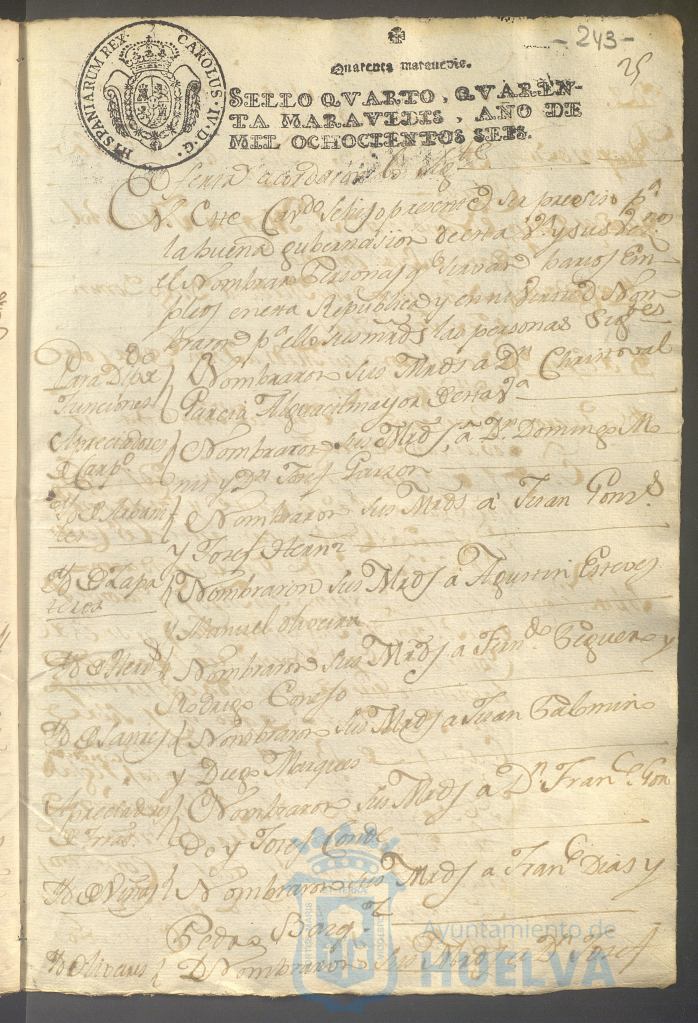 - 243 -
25
HISPANIARUM REX · CAROLUS · IV · D · G ·
Quarenta maravedis.
SELLO QVARTO, QVAREN-
TA MARAVEDIS, AÑO DE
MIL OCHOCIENTOS SEIS.
En Este Cav.do se hizo presente ser preciso p.a
la buena gubernasion de esta V.a y sus Vez.nos
el Nombrar Personas q.e sirvan barios Em-
pleos en esta Republica y en su Nom-
braron p.a ello sus mrds las personas Sig.tes
Para D.tor de
Funciones
Nombraron sus Mrds a D.n Christoval
Garcia Alguacil mayor de esta V.a
Apreciadores
de Carp.o
Nombraron sus Mrds, a D.n Domingo M
y D.n Josef Garzon
Yd. de Albañi
les
Nombraron sus Mrds a Juan Gonz.s
y Josef Hern.z
Yd. de Zapa
teros
Nombraron sus Mrds a Agustin Esteves
y Manuel oliveira
Yd. de Herr.s
Nombraron sus Mrds a Fern.do Figuero y
Rodrigo Conejo
Yd. de Sastres
Nombraron sus Mrds a Juan Palomino
y Diego Marques
Apreciadores
de Tierras
Nombraron sus Mrds a D.n Fran.co Gon
y Josef Conde
Yd. de Viñas
Nombraron sus Mrds a Fran.co Dias y
Pedro
Yd. Olivares
Nombraron sus Mrds a D.n Josef
Ayuntamiento de
HUELVA